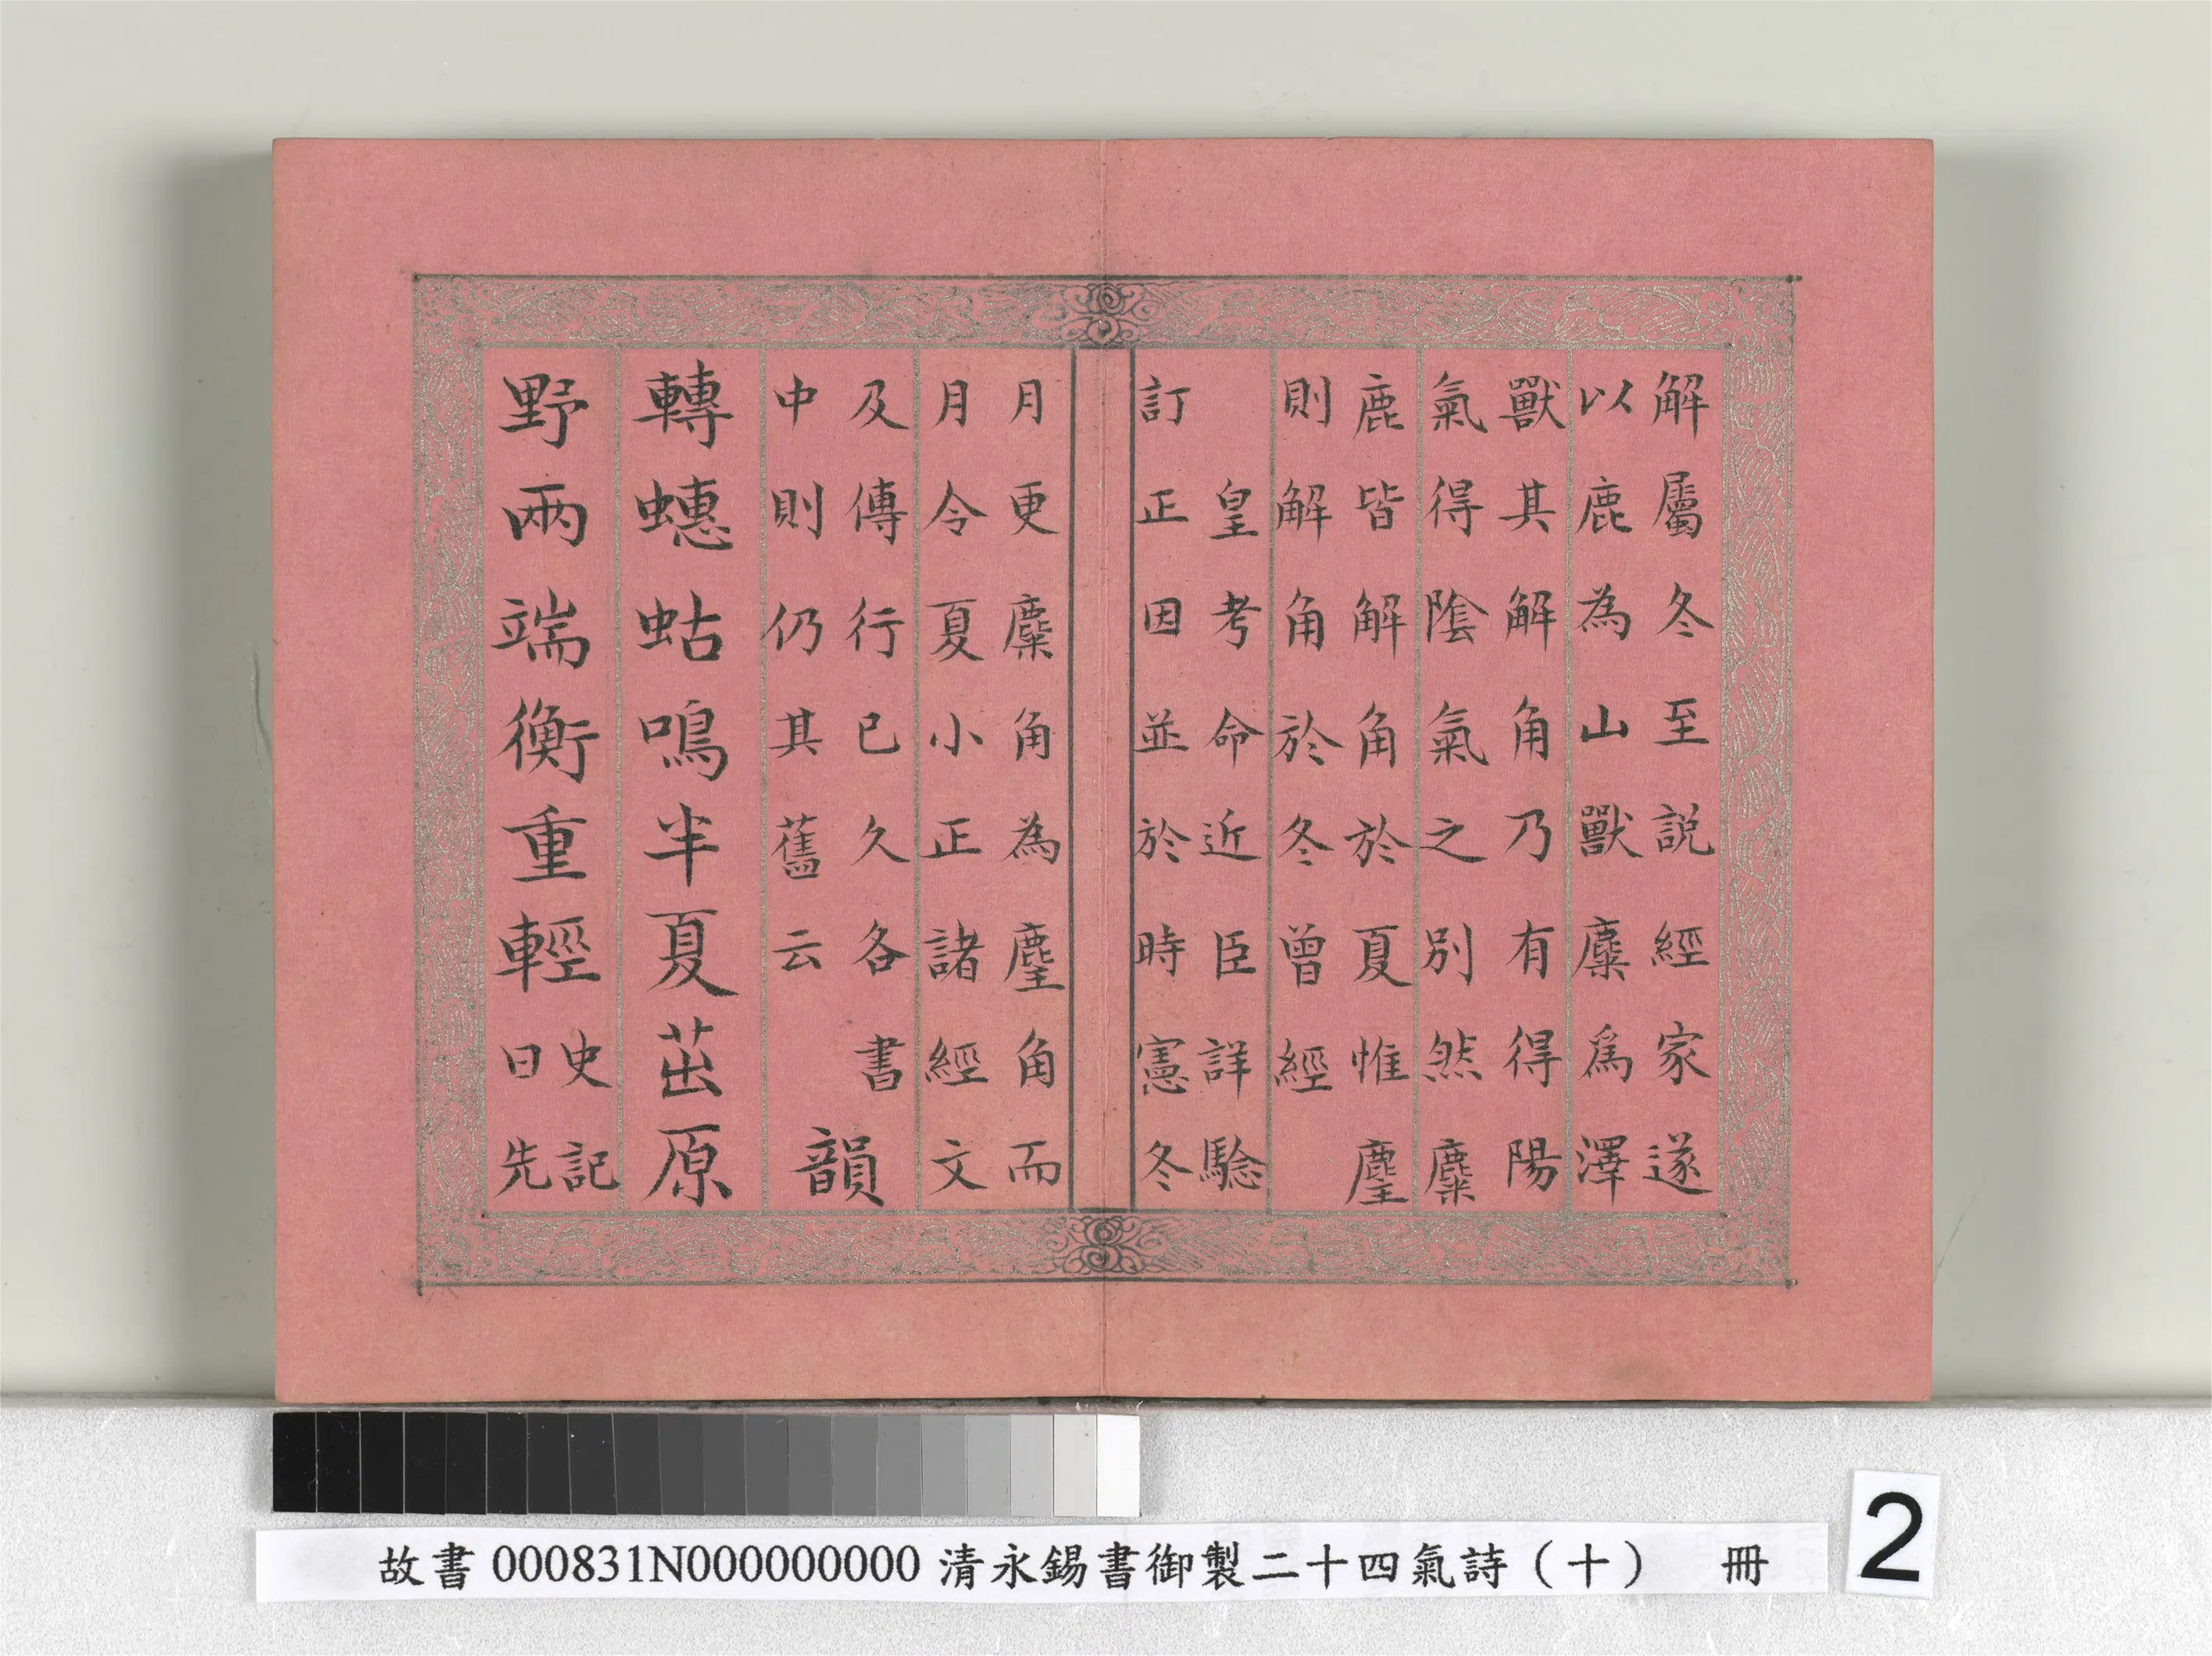 解屬冬至說經家遂
以鹿為山獸麋爲澤
獸其解角乃有得陽
氣得陰氣之別然麋
鹿皆解角於夏惟麈
則解角於冬曾經
皇考命近臣詳驗
訂正因並於時憲冬
月更麋角為麈角而
月令夏小正諸經文
及傳行已久各書
中則仍其舊云
韻
轉蟪蛄鳴半夏茁原
野兩端衡重輕
史記
日先
故書000831N000000000清永錫書御製二十四氣詩（十） 冊
2